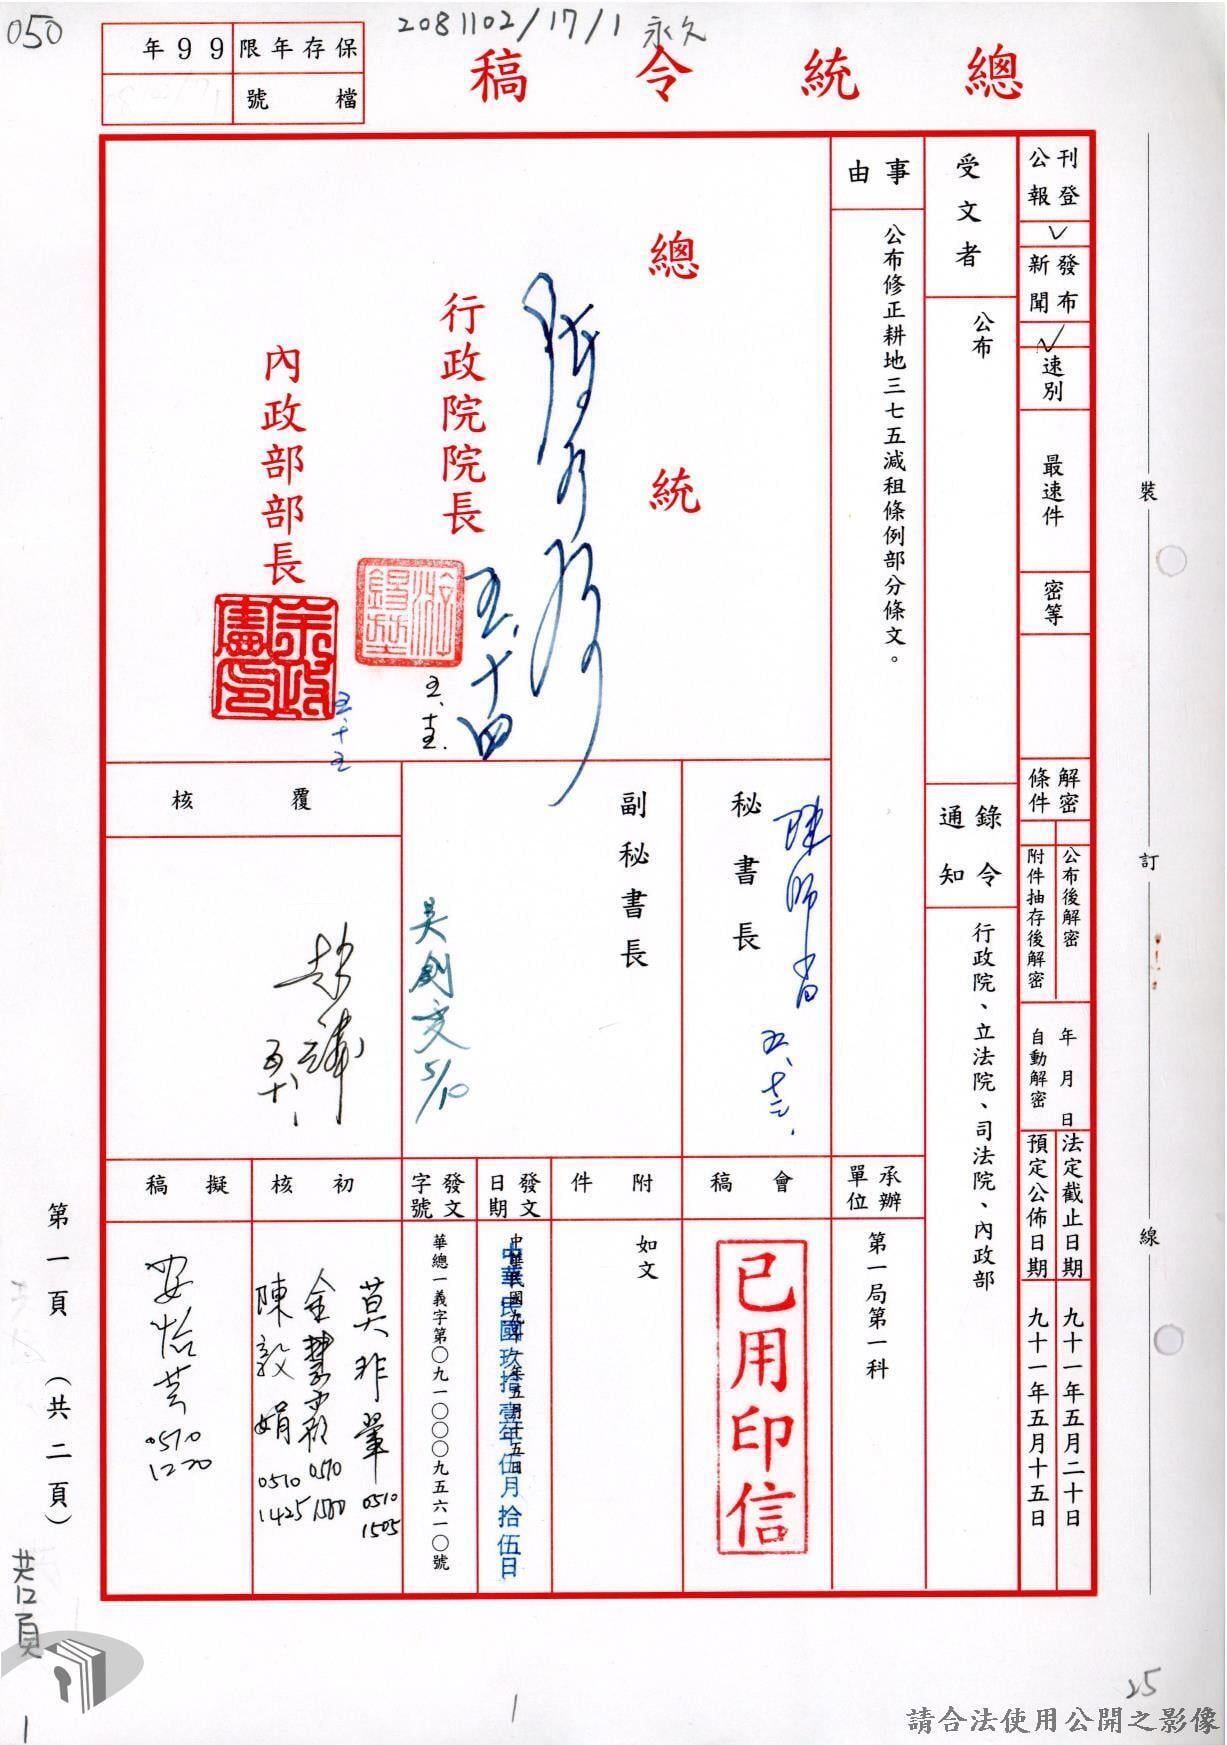 050
2081102/17/1 永久
保存年限
99年
檔號
總統令稿
刊登公報
✓
發布新聞
✓
速別
最速件
密等
解密條件
公布後解密
附件抽存後解密
年月日
自動解密
法定截止日期
九十一年五月二十日
預定公佈日期
九十一年五月十五日
受文者
公布
錄令通知
行政院、立法院、司法院、內政部
事由
公布修正耕地三七五減租條例部分條文。
總統
陳水扁
五、十四
行政院院長
游錫堃
內政部部長
余政憲印
五、十五
秘書長
陳師孟
五、十三、
副秘書長
吳釗燮
5/10
覆核
承辦單位
第一局第一科
會稿
已用印信
附件
如文
發文日期
中華民國九十一年五月十五日
中華民國玖拾壹年伍月拾伍日
發文字號
華總一義字第〇九一〇〇〇九五六一〇號
初核
莫非
0510
1505
0510
1500
陳毅娟
0510
1425
擬稿
安怡芸
0510
1220
第一頁(共二頁)
共12頁
裝
訂
線
1
1
25
請合法使用公開之影像